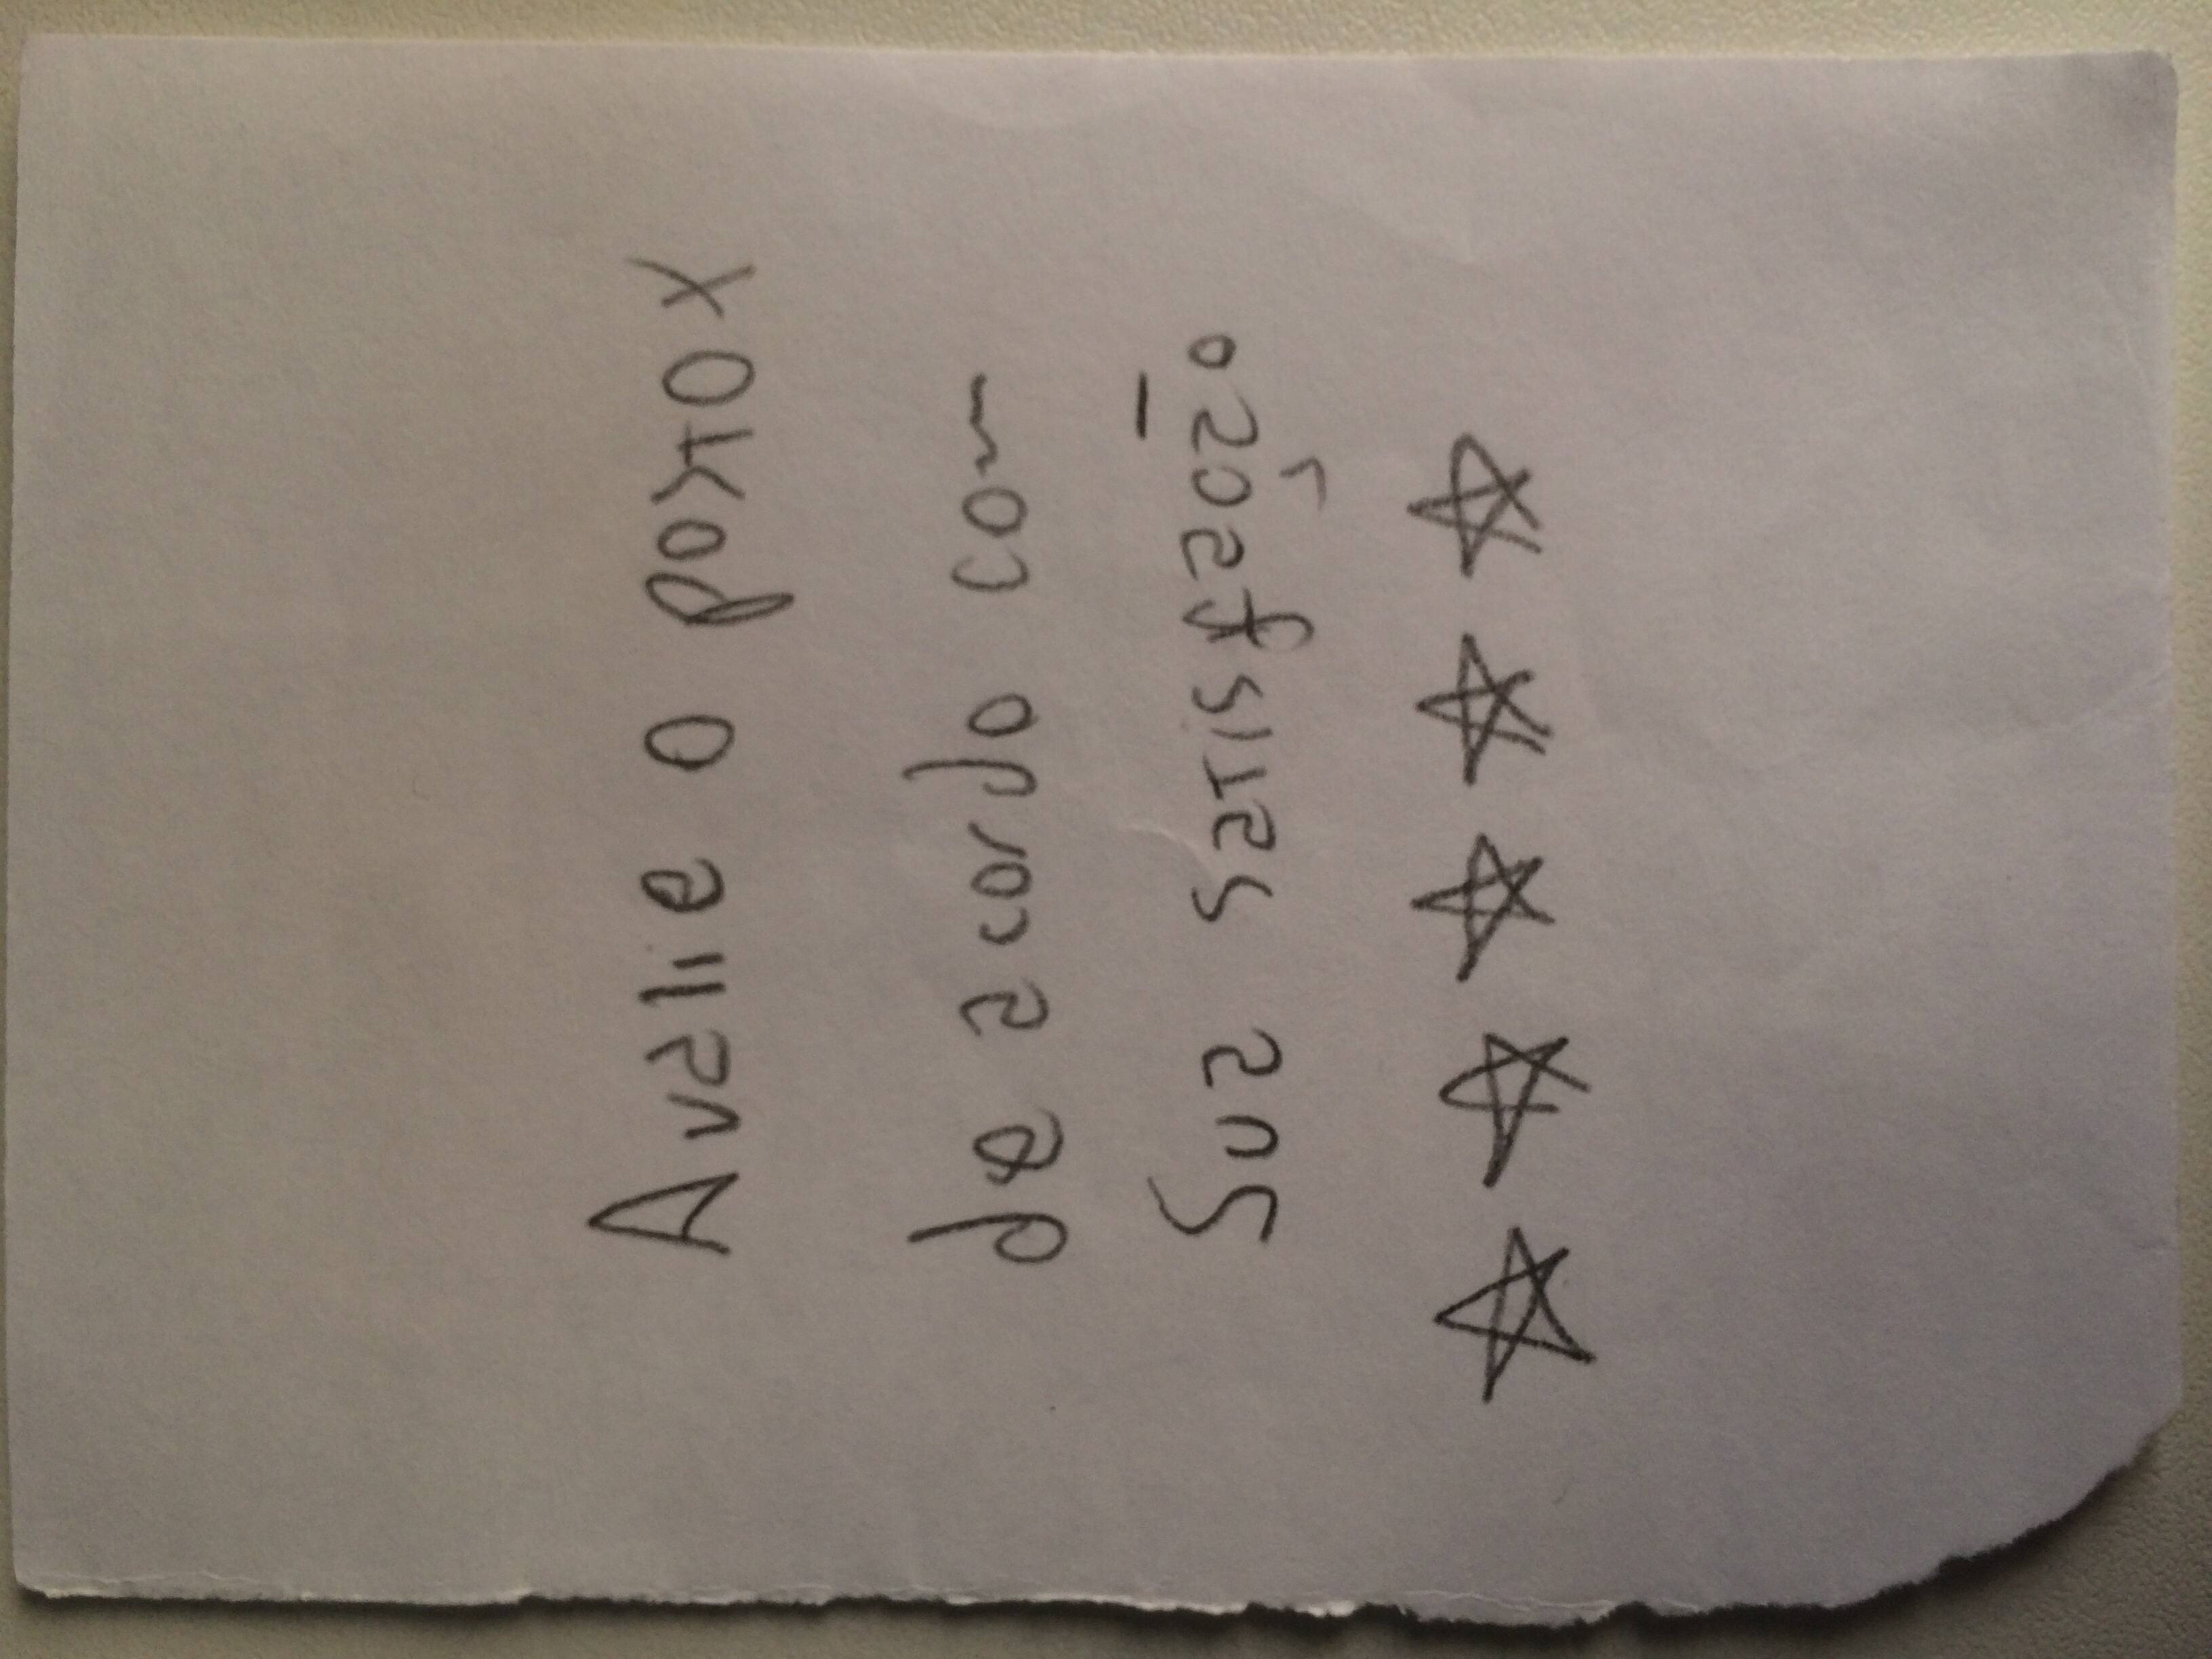 Avalie o posto X
de acordo com
Sua satisfação